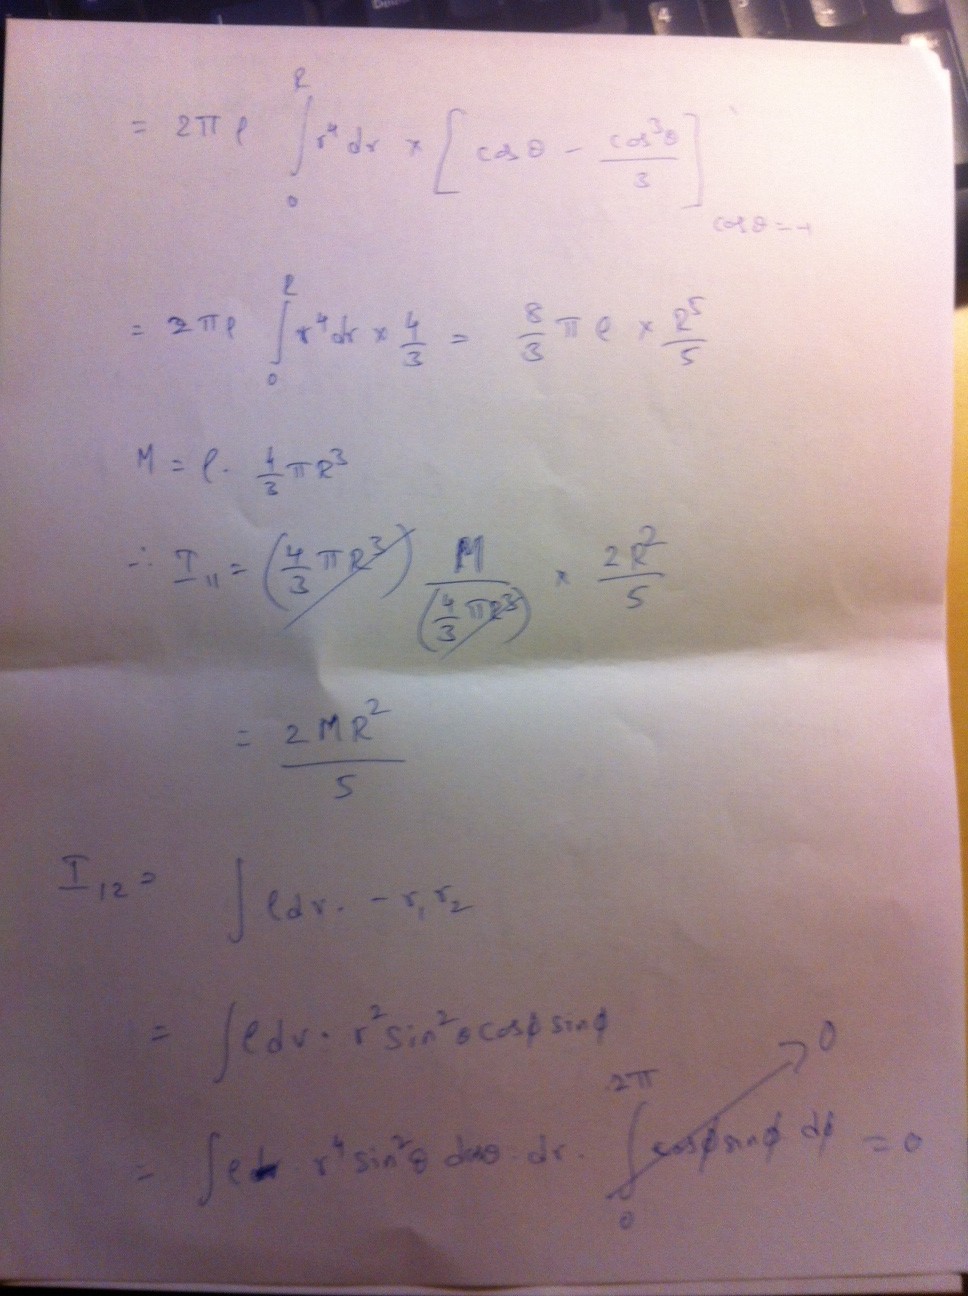 4
= 2πρ ∫₀ᴿ r⁴ dr × [cosθ − cos³θ/3]_{cosθ=−1}
= 2πρ ∫₀ᴿ r⁴ dr × 4/3 = 8/3 πρ × R⁵/5
M = ρ · 4/3 πR³
∴ I₁₁ = (4/3 πR³) M/(4/3 πR³) × 2R²/5
= 2MR²/5
I₁₂ = ∫ρdv · −r₁r₂
= ∫ρdv · r² sin²θ cosφ sinφ
= ∫ρ r⁴ sin²θ dcosθ · dr · ∫₀^{2π} cosφ sinφ dφ → 0 = 0